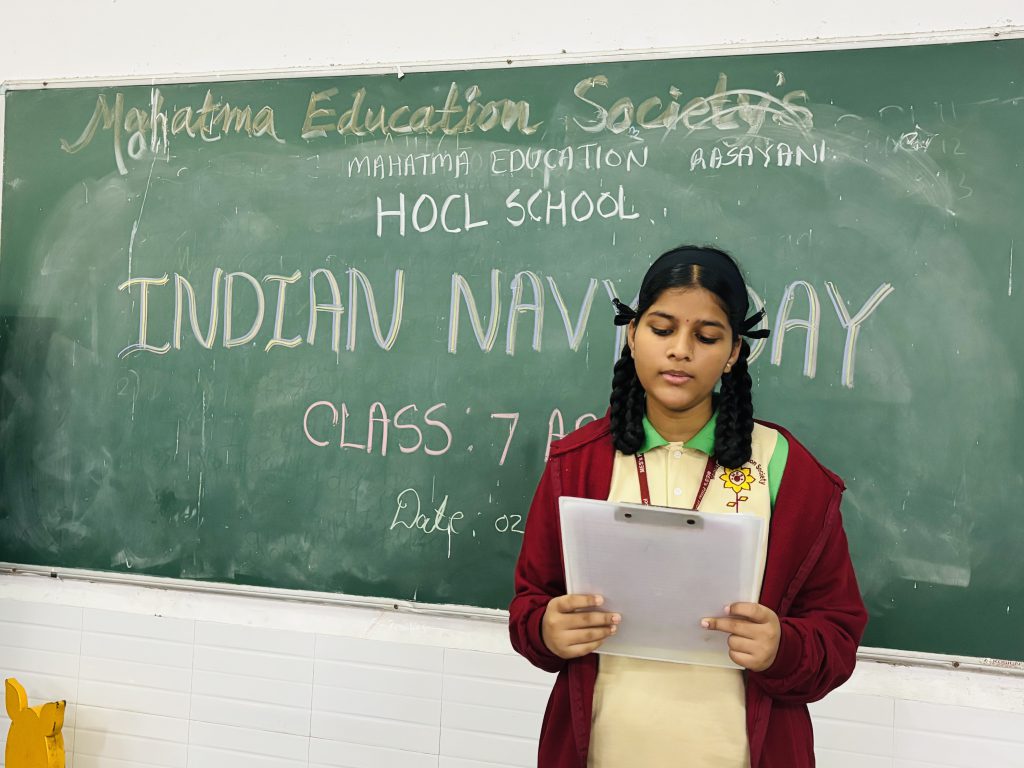 Mahatma Education Society's
MAHATMA EDUCATION RASAYANI
HOCL SCHOOL
INDIAN NAVY DAY
CLASS: 7
Date: 02
Society